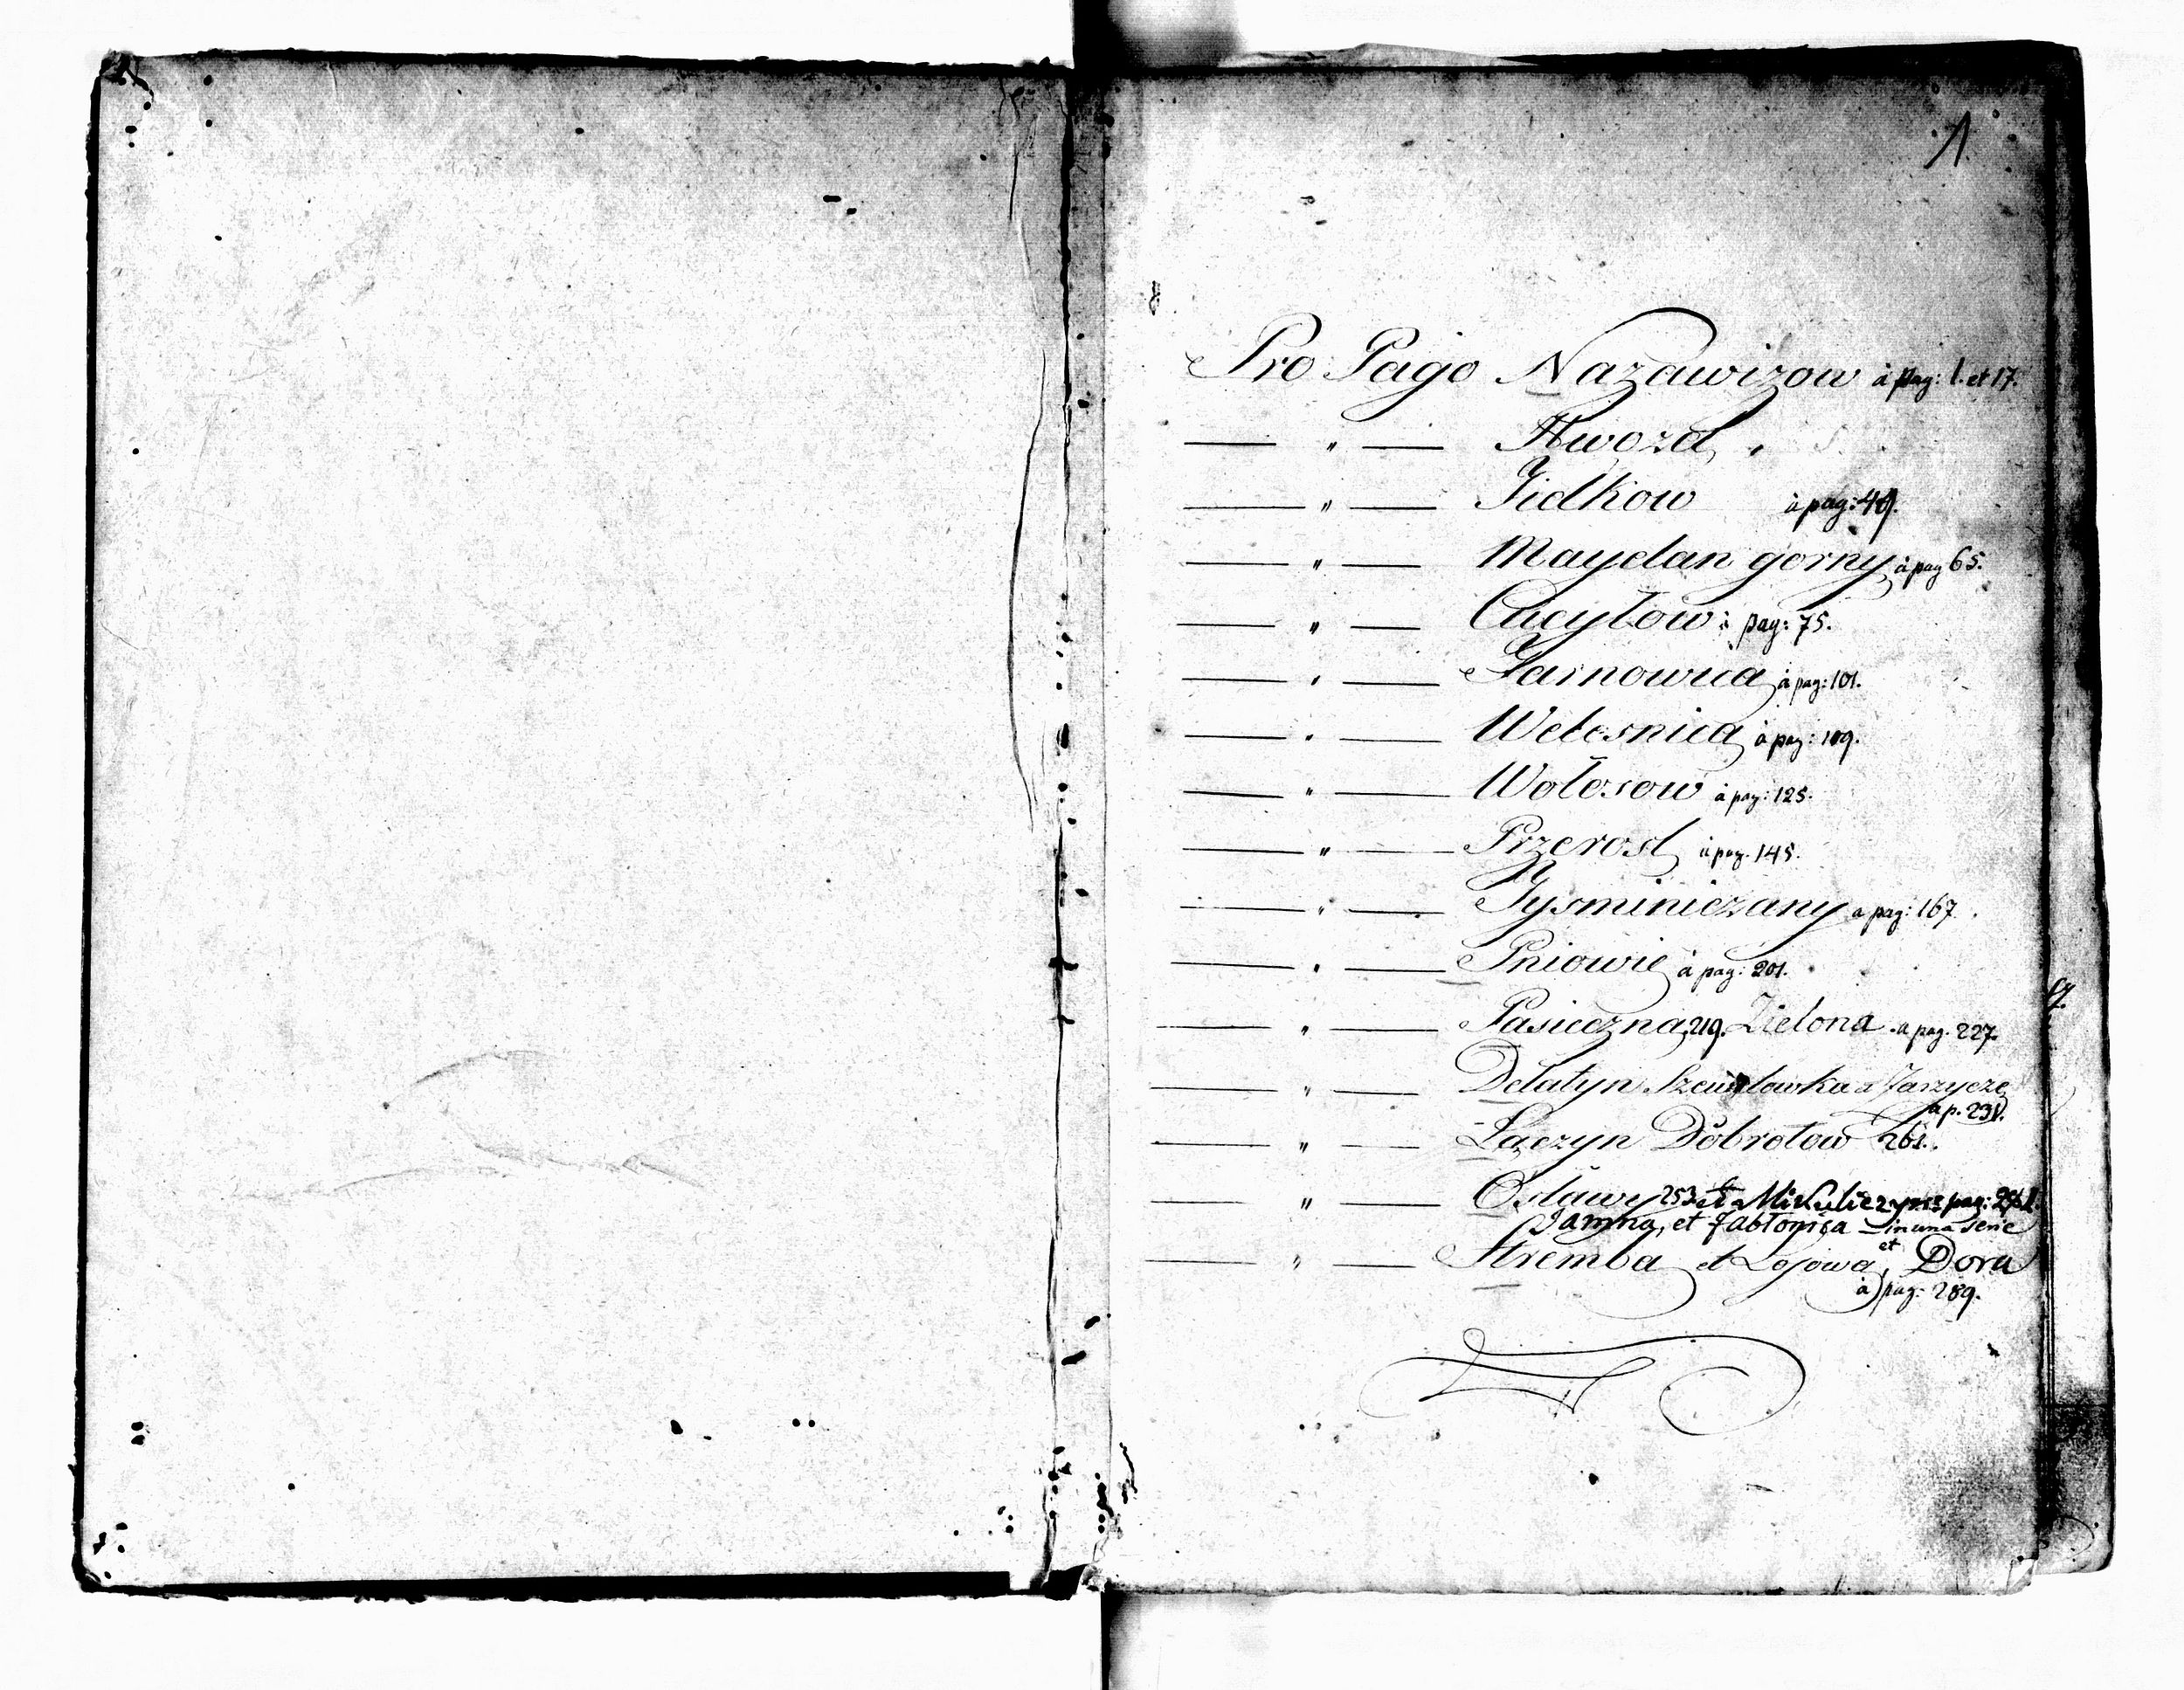 1.
Pro Pago Nazawizow à pag: 1. et 17.
— " — Hwozd,
— " — Fitkow à pag: 49.
— " — Maydan gorny à pag 65.
— " — Cucyłow à pag: 75.
— " — Tarnowica à pag: 101.
— " — Welesnica à pag: 109.
— " — Wołosow à pag: 125.
— " — Przerosl à pag. 145.
— " — Tysminiczany a pag: 167.
— " — Pniowie à pag: 201.
— " — Pasieczna, 219. Zielona a pag. 227.
— " — Delatyn a Zarzycze
à p. 231.
— " — Łaczyn Dobrotow 261.
— " — Osławy 253 et Mikuliczyn pag:
Jamna, et Jabłonica in una serie
— " — Stremba et Łojowa, et Dora
à pag: 289.